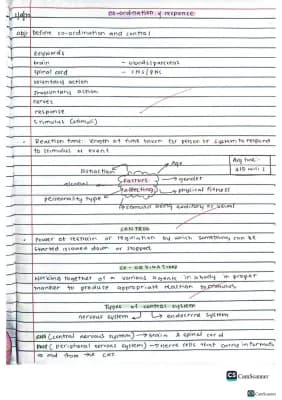 co-ordination & response
Obj: Define co-ordination and control
Keywords
brain
spinal cord - CNS / PNS
voluntary action
Involuntary action
nerves
response
stimulus (stimuli)
Reaction time: length of time taken for person or system to respond
to stimulus or event
Distraction
Age
Factors
affecting
gender
alcohol
physical fitness
personality type
stimulus being auditory or visual
CONTROL
Power of restrain or regulation by which something can be
started slowed down or stopped
CO-ORDINATION
Working together of various agents in a body in proper
manner to produce appropriate reaction to stimulus
Types of control system
nervous system
endocrine system
CNS (central nervous system) → brain & spinal cord
PNS (peripheral nervous system) → nerve cells that carry information
to and from the CNS.
CS CamScanner